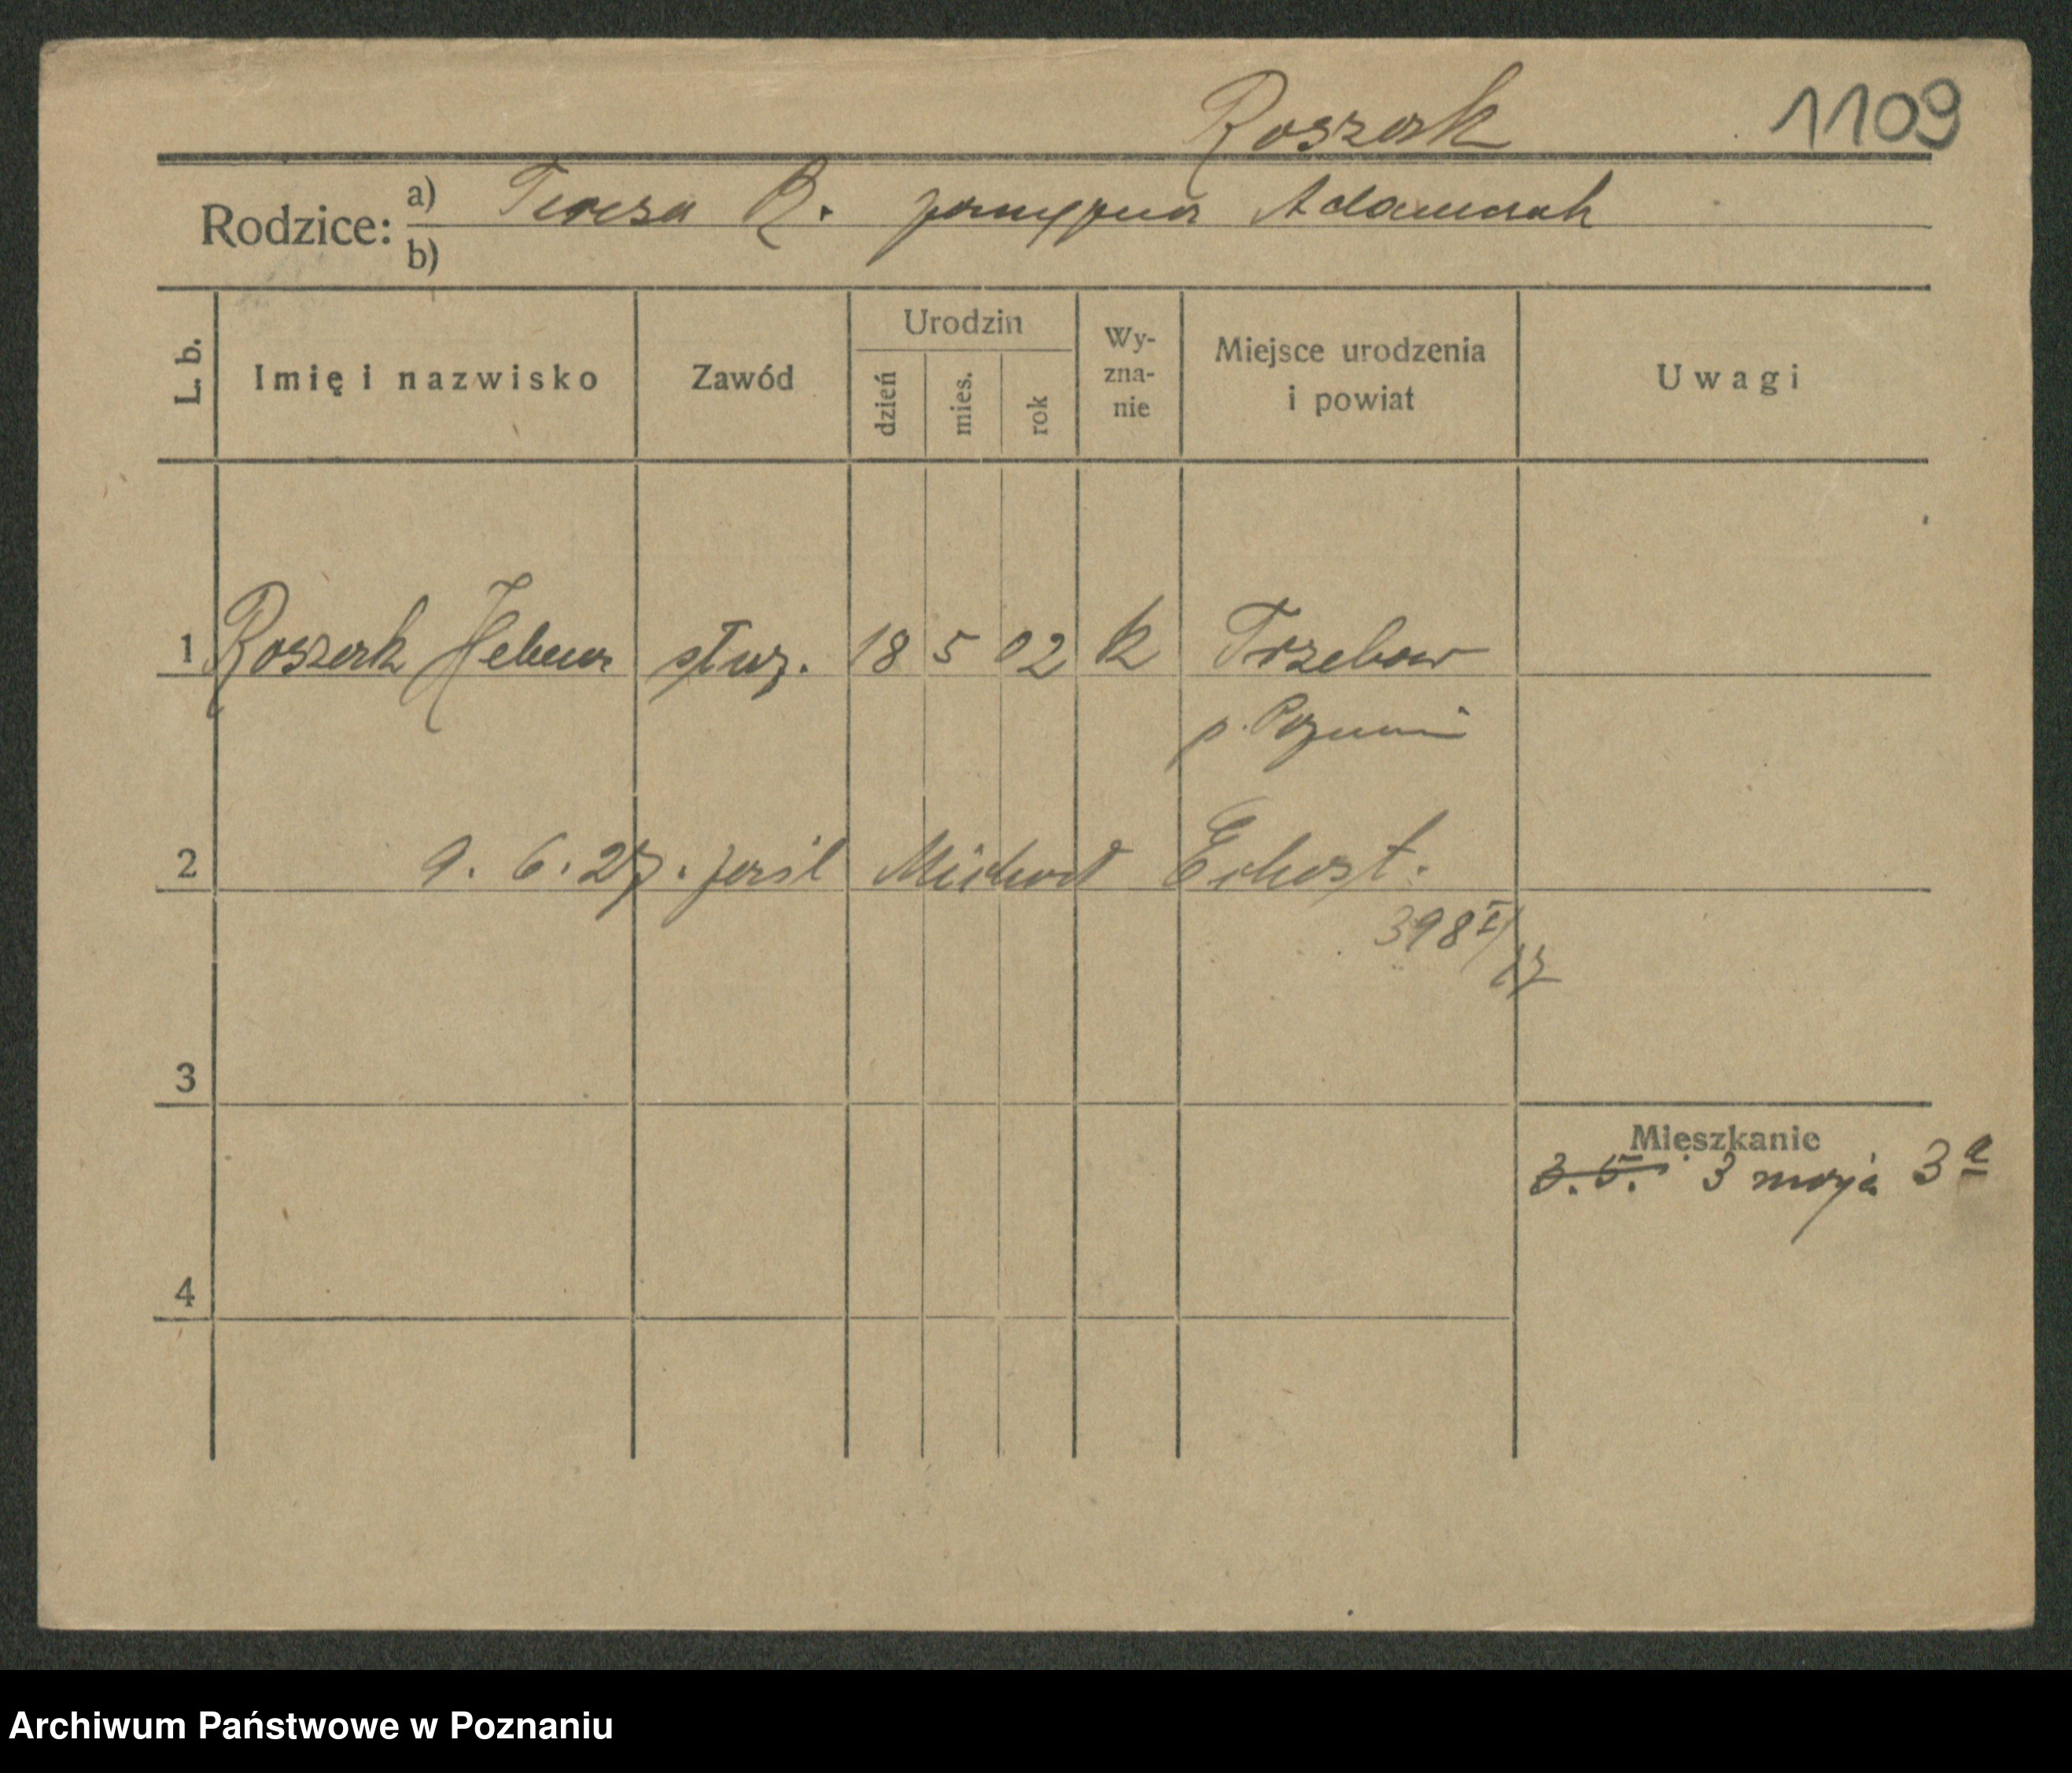 Roszak 1109
Rodzice: a) Teresa R. zamężna Adamczak
b)
L. b. Imię i nazwisko Zawód Urodzin dzień mies. rok Wy-zna-nie Miejsce urodzenia i powiat Uwagi
1 Roszak Helena służ. 18 5 02 k Trzebaw
p. Poznań
2 9. 6. 27.
398 I/
27
3
Mieszkanie
3. 5. 3 maja 3 a
4
Archiwum Państwowe w Poznaniu